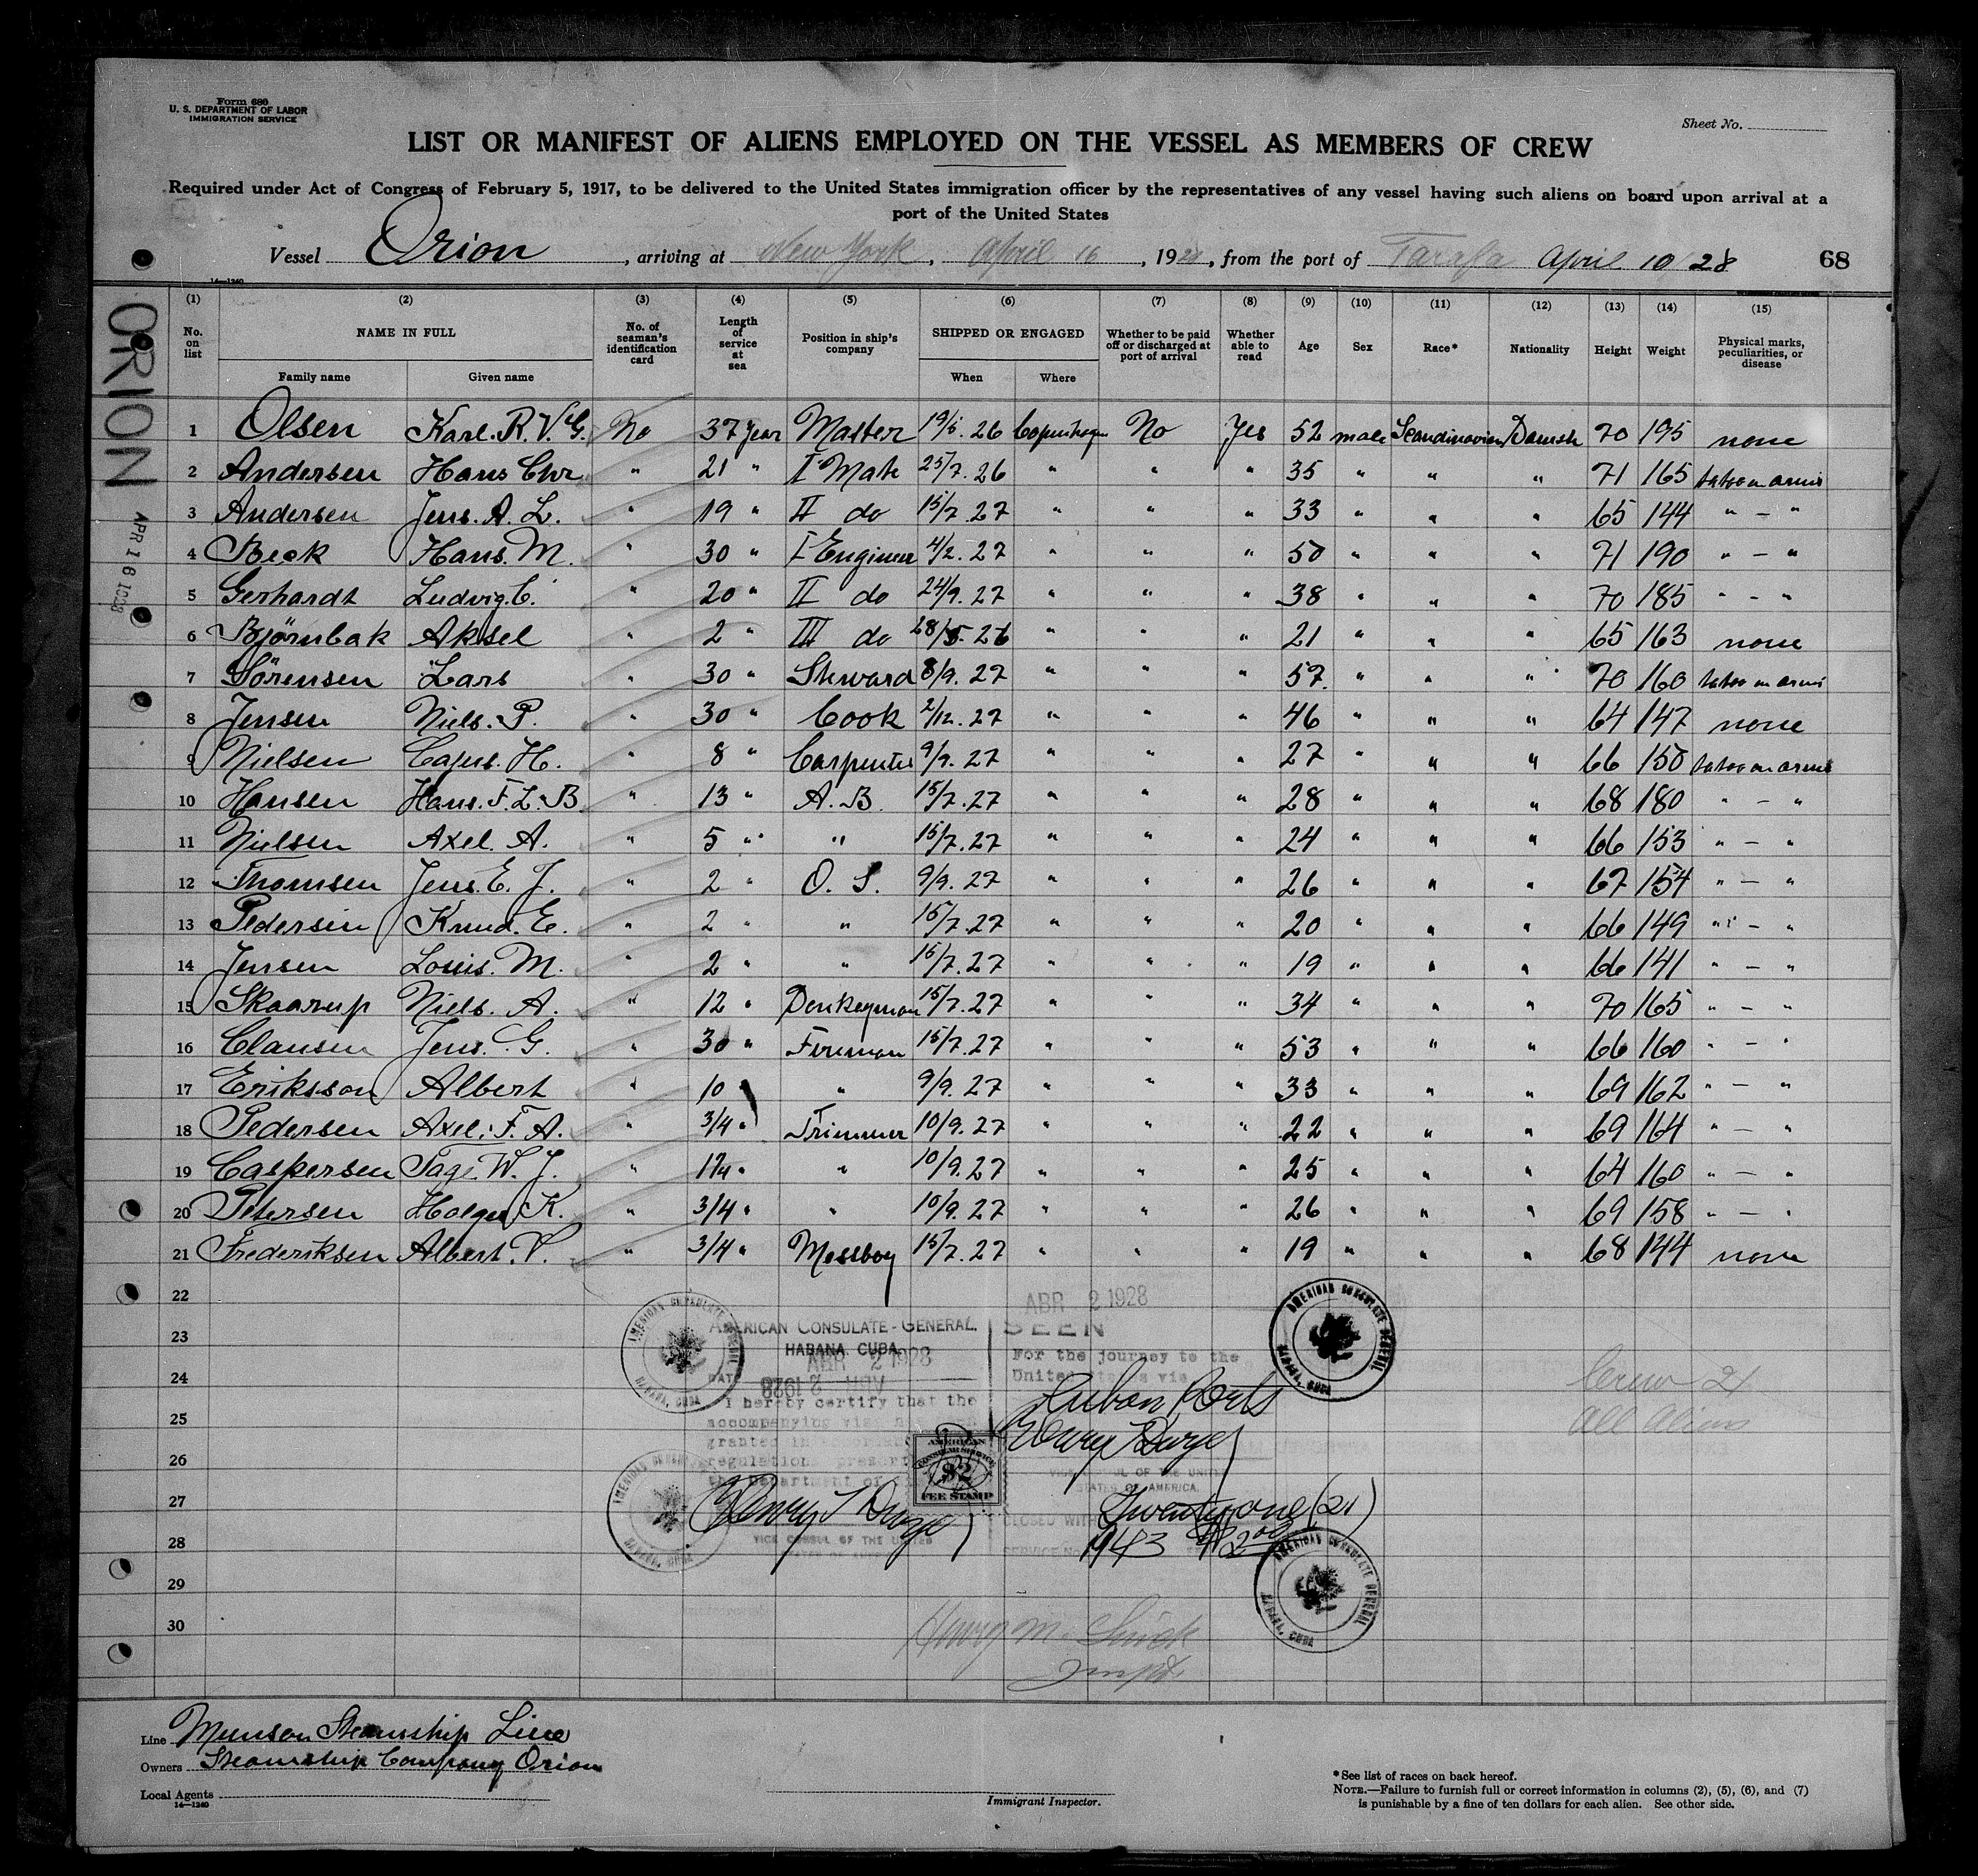 Form 680
U. S. DEPARTMENT OF LABOR
IMMIGRATION SERVICE
Sheet No.
LIST OR MANIFEST OF ALIENS EMPLOYED ON THE VESSEL AS MEMBERS OF CREW
Required under Act of Congress of February 5, 1917, to be delivered to the United States immigration officer by the representatives of any vessel having such aliens on board upon arrival at a
port of the United States
Vessel Orion, arriving at New York, April 16, 1928, from the port of Tarafa April 10/28 68
14—1240
ORION
APR 16 1928
(1) (2) (3) (4) (5) (6) (7) (8) (9) (10) (11) (12) (13) (14) (15)
No. on list NAME IN FULL Family name Given name No. of seaman's identification card Length of service at sea Position in ship's company SHIPPED OR ENGAGED When Where Whether to be paid off or discharged at port of arrival Whether able to read Age Sex Race* Nationality Height Weight Physical marks, peculiarities, or disease
1 Olsen Karl. R. V. G. No 37 year Master 19/5. 26 Copenhagen No Yes 52 male Scandinavian Danish 70 195 none
2 Andersen Hans Chr " 21 " I Mate 25/7. 26 " " " 35 " " " 71 165 tatoo on arms
3 Andersen Jens. A. L. " 19 " II do 15/7. 27 " " " 33 " " " 65 144 " – "
4 Beck Hans. M. " 30 " I Engineer 4/2. 27 " " " 50 " " " 71 190 " – "
5 Gerhardt Ludvig. C. " 20 " II do 24/9. 27 " " " 38 " " " 70 185 " – "
6 Björnbak Aksel " 2 " III do 28/5. 26 " " " 21 " " " 65 163 none
7 Sörensen Lars " 30 " Steward 8/9. 27 " " " 57. " " " 70 160 tatoo on arms
8 Jensen Niels. P. " 30 " Cook 2/12. 27 " " " 46 " " " 64 147 none
9 Nielsen Cajus. H. " 8 " Carpenter 9/9. 27 " " " 27 " " " 66 150 tatoo on arms
10 Hansen Hans. F. L. B " 13 " A. B. 15/7. 27 " " " 28 " " " 68 180 " – "
11 Nielsen Axel. A. " 5 " " 15/7. 27 " " " 24 " " " 66 153 " – "
12 Thomsen Jens. E. J. " 2 " O. S. 9/9. 27 " " " 26 " " " 67 154 " – "
13 Pedersen Knud. E. " 2 " " 15/7. 27 " " " 20 " " " 66 149 " – "
14 Jensen Louis. M. " 2 " " 15/7. 27 " " " 19 " " " 66 141 " – "
15 Skaarup Niels. A. " 12 " Donkeyman 15/7. 27 " " " 34 " " 70 165 " – "
16 Clausen Jens. G. " 30 " Fireman 15/7. 27 " " " 53 " " " 66 160 " – "
17 Eriksson Albert " 10 " " 9/9. 27 " " " 33 " " " 69 162 " – "
18 Pedersen Axel. F. A. " 3/4 " Trimmer 10/9. 27 " " " 22 " " " 69 164 " – "
19 Caspersen Tage. W. J. " 1 1/4 " " 10/9. 27 " " " 25 " " " 64 160 " – "
20 Petersen Holger K. " 3/4 " " 10/9. 27 " " " 26 " " " 69 158 " – "
21 Frederiksen Albert. V. " 3/4 " Messboy 15/7. 27 " " " 19 " " " 68 144 none
22
23
24
25
26
27
28
29
30
AMERICAN CONSULATE GENERAL
HABANA, CUBA
AMERICAN CONSULATE-GENERAL,
HABANA, CUBA
ABR 2 1928
DATE ABR 2 1928
I hereby certify that the
accompanying visa has been
granted in
regulations
the Department of
Henry T Dwyer
VICE CONSUL OF THE UNITED
AMERICAN
CONSULAR SERVICE
$2
FEE STAMP
ABR 2 1928
SEEN
For the journey to the
United States via
Cuban Ports
VICE CONSUL OF THE UNITED
STATES OF AMERICA.
Twenty one (21)
CLOSED WITH
SERVICE No. 1943 $2.00
AMERICAN CONSULATE GENERAL
HABANA, CUBA
AMERICAN CONSULATE GENERAL
HABANA, CUBA
AMERICAN CONSULATE GENERAL
HABANA, CUBA
Crew 21
All Aliens
Harry M.
Line Munson Steamship Line
Owners Steamship Company Orion
Local Agents
14—1240
Immigrant Inspector.
*See list of races on back hereof.
NOTE.—Failure to furnish full or correct information in columns (2), (5), (6), and (7)
is punishable by a fine of ten dollars for each alien. See other side.